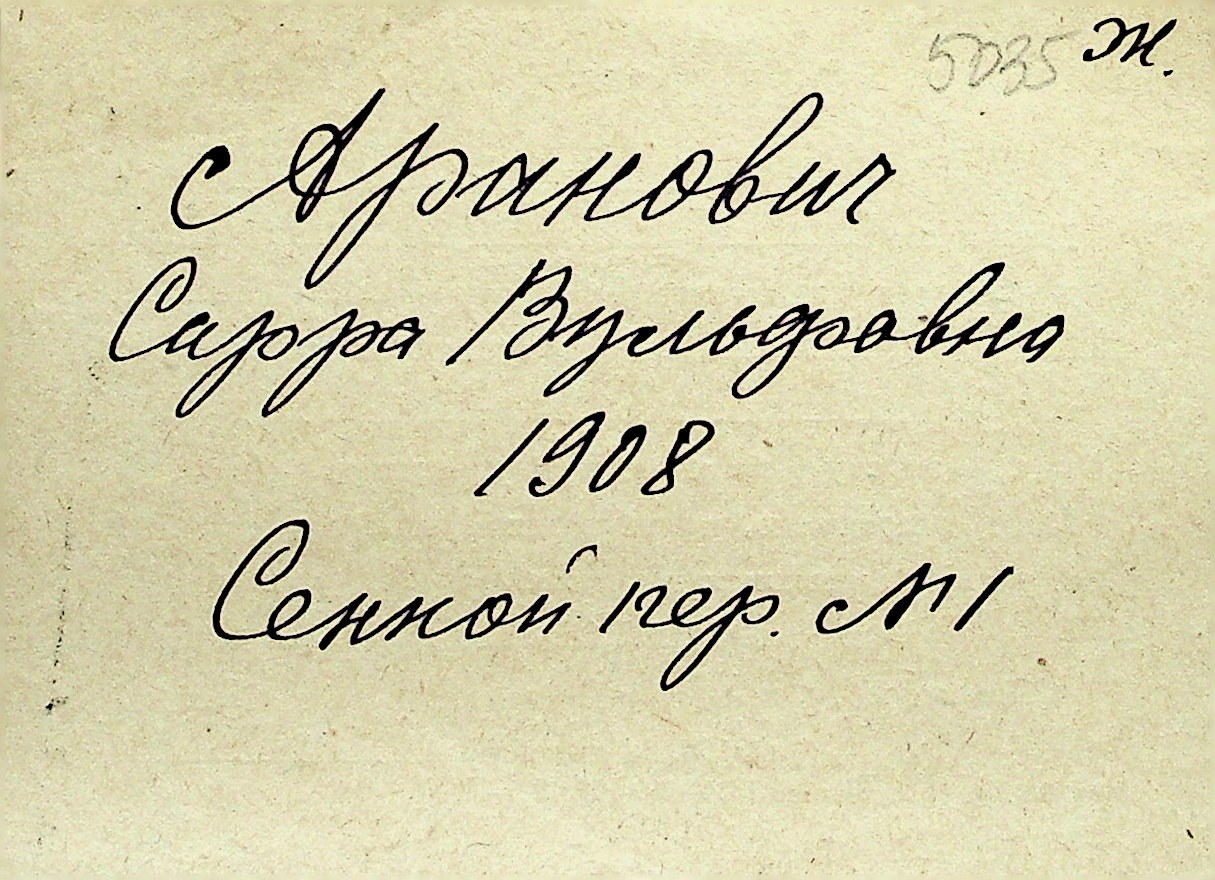 5035 Ж.
Аранович
Сарра Вульфовна
1908
Сенной пер. № 1